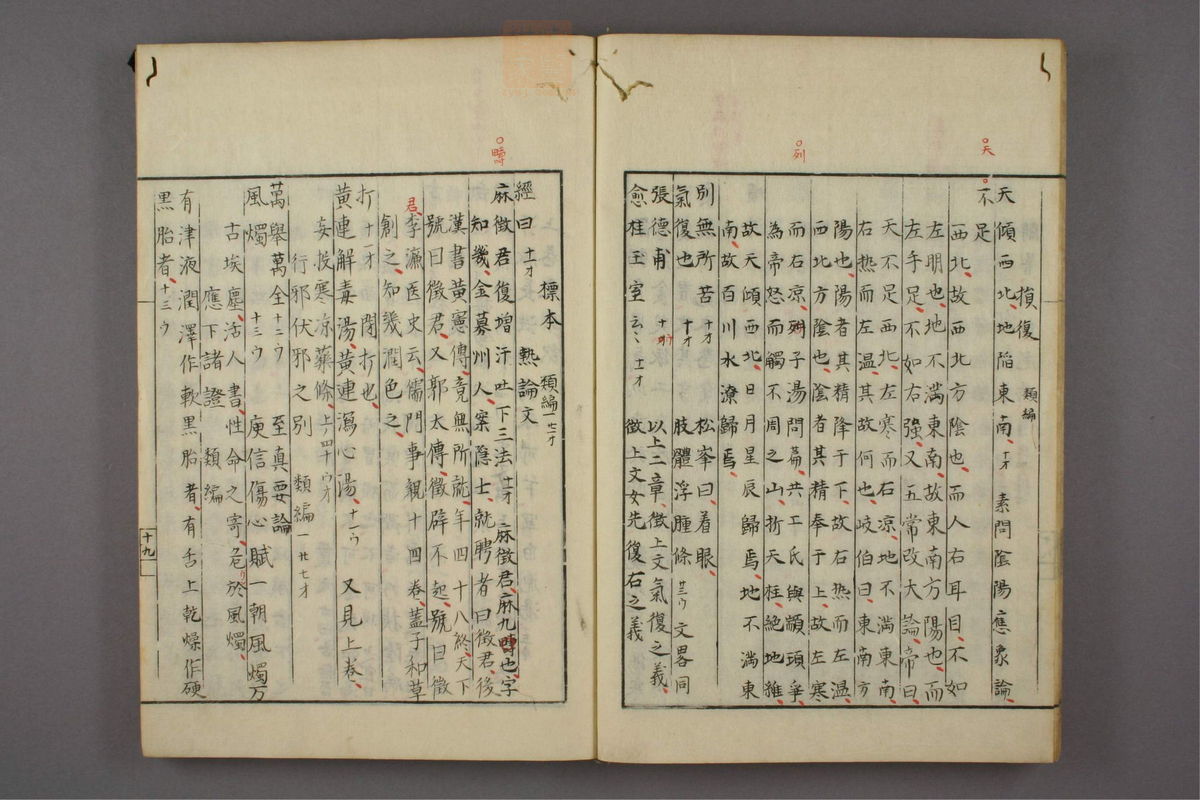 ○天
○列
損復　類編
天傾西北、地陥東南、十オ　素問陰陽應象論、
○天不足
西北、故西北方陰也、而人右耳目、不如
左明也、地不満東南、故東南方陽也、而
左手足、不如右強、又五常政大論、帝曰、
天不足西北、左寒而右凉、地不満東南、
右热而左温、其故何也、岐伯曰、東南方
陽也、陽者其精降于下、故右热而左温、
西北方陰也、陰者其精奉于上、故左寒
而右凉、列子湯問篇、共工氏與顓頊爭
為帝、怒而觸不周之山、折天柱、絶地維、
故天傾西北、日月星辰歸焉、地不満東
南、故百川水潦歸焉、
別無所苦　十オ　松峯曰、着眼
氣復也　十オ　肢體浮腫條　廿三ウ　文畧同
張德甫　十オ　以上二章、徴上文氣復之義、
愈桂玉室云々　十一オ　徴上文女先復右之義
○疇
經曰　十一オ　標本　熱論文　類編一廿一オ
麻徴君復増汗吐下三法　十一オ　麻徴君、麻九疇也、字
知幾、金莫州人、案隱士、就聘者曰徴君、後
漢書黄憲傳、竟無所就、年四十八終、天下
號曰徴君、又郭太傳、徴辟不起、號曰徴
君、李濂医史云、儒門事親十四卷、蓋子和草
創之、知幾潤色之、
疔　十一オ　閒疔也、
黄連解毒湯、黄連瀉心湯、十一ウ　又見上卷、
妄投寒凉藥條、上ノ四十ウオ
行邪伏邪之別　類編一廿七オ
萬舉萬全　十二ウ　至真要論
風燭　十三ウ　庾信傷心賦一朝風燭万
古埃塵、活人書、性命之寄、危於風燭、
應下諸證　類編
有津液潤澤作軟黒胎者、有舌上乾燥作硬
黒胎者、十三ウ
十九